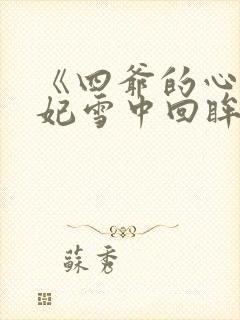 《四爷的心
妃雪中回眸
蘇秀